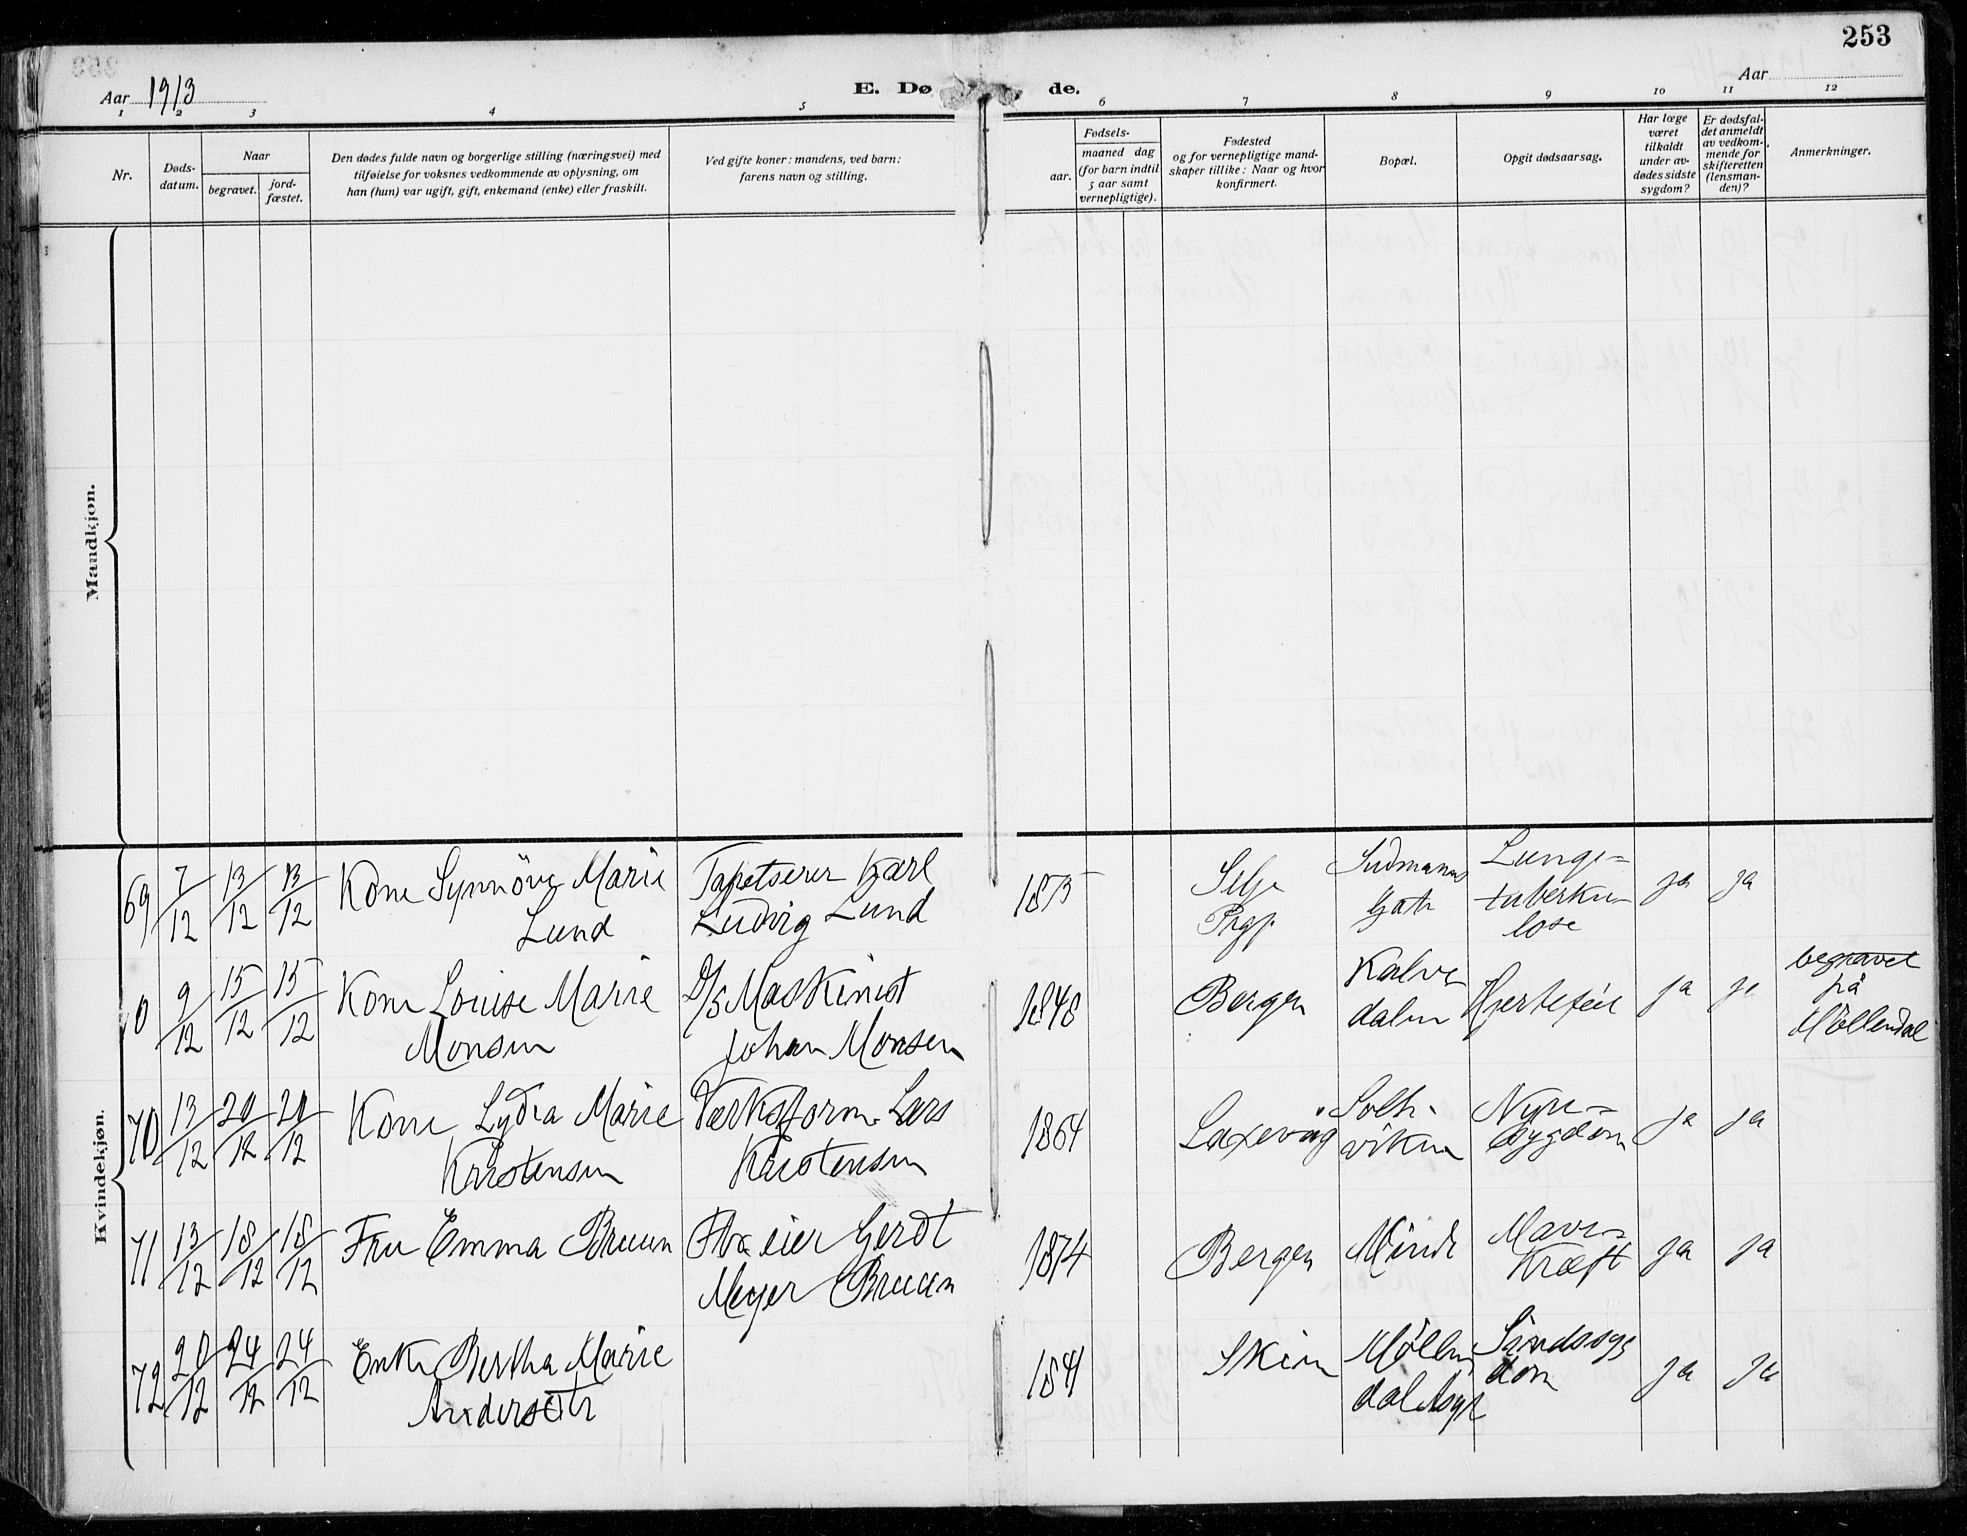 253
Aar 1913
E. Dø de.
Aar
1 2 3 4 5 6 7 8 9 10 11 12
Nr.
Døds-
datum.
Naar
begravet.
jord-
fæstet.
Den dødes fulde navn og borgerlige stilling (næringsvei) med
tilføielse for voksnes vedkommende av oplysning, om
han (hun) var ugift, gift, enkemand (enke) eller fraskilt.
Ved gifte koner: mandens, ved barn:
farens navn og stilling.
Fødsels-
aar.
maaned dag
(for barn indtil
5 aar samt
vernepligtige).
Fødested
og for vernepligtige mand-
skaper tillike: Naar og hvor
konfirmert.
Bopæl.
Opgit dødsaarsag.
Har læge
været
tilkaldt
under av-
dødes sidste
sygdom?
Er dødsfal-
det anmeldt
av vedkom-
mende for
skifteretten
(lensman-
den)?
Anmerkninger.
Mandkjøn.
Kvindekjøn.
69 7/12 13/12 13/12
Kone Synnöve Marie
Lund
Tapetserer Karl
Ludvig Lund
1875
Selje
Prgj.
Sudmanns
Gate
Lunge-
tuberku-
lose
ja ja
0 9/12 15/12 15/12
Kone Louise Marie
Monsen
D/S Maskinist
Johan Monsen
1848
Bergen
Kalve
dalen
Hjertefeil
ja ja
begravet
på
Möllendal
70 13/12 20/12 20/12
Kone Lydia Marie
Kristensen
Værksform. Lars
Kristensen
1864
Laxevåg
Solh.
viken
Nyre-
sygdom
ja ja
71 13/12 18/12 18/12
Fru Emma Bruun
eier Gerdt
Meyer Bruun
1874
Bergen
Minde
Mave-
kræft
ja ja
72 20/12 24/12 24/12
Enke Bertha Marie
Andersdtr
1841
Skien
Möllen
dal Asyl
Sindssyg
dom
ja ja